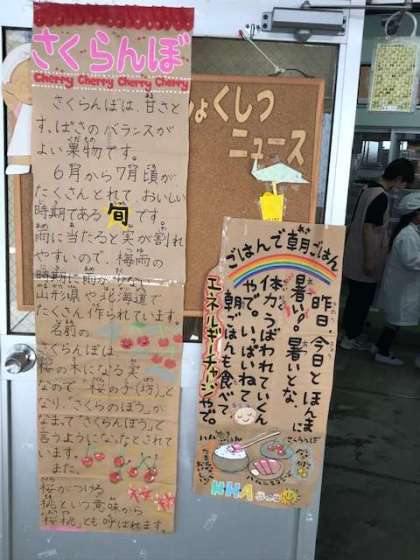 さくらんぼ
Cherry Cherry Cherry Cherry
さくらんぼは、甘さと
すっぱさのバランスが
よい果物です。
6月から7月頃が
たくさんとれて、おいしい
時期である旬です。
雨に当たると実が割れ
やすいので、梅雨の
時期に雨が少ない
山形県や北海道で
たくさん作られています。
名前の
さくらんぼは
桜の木になる実
なので「桜の子(坊)」と
なり、「さくらのぼう」が
なまって「さくらんぼう」と
言うようになったとされて
います。
また、
桜がつける
桃という意味から
"桜桃"とも呼ばれます。
ょくしつ
ニュース
ごはんで朝ごはん
昨日、今日とほんまに
暑い!!暑いとな、
体力うばわれていくん
やで。いっぱいねて、
朝ごはんも食べて
エネルギーチャージやで。